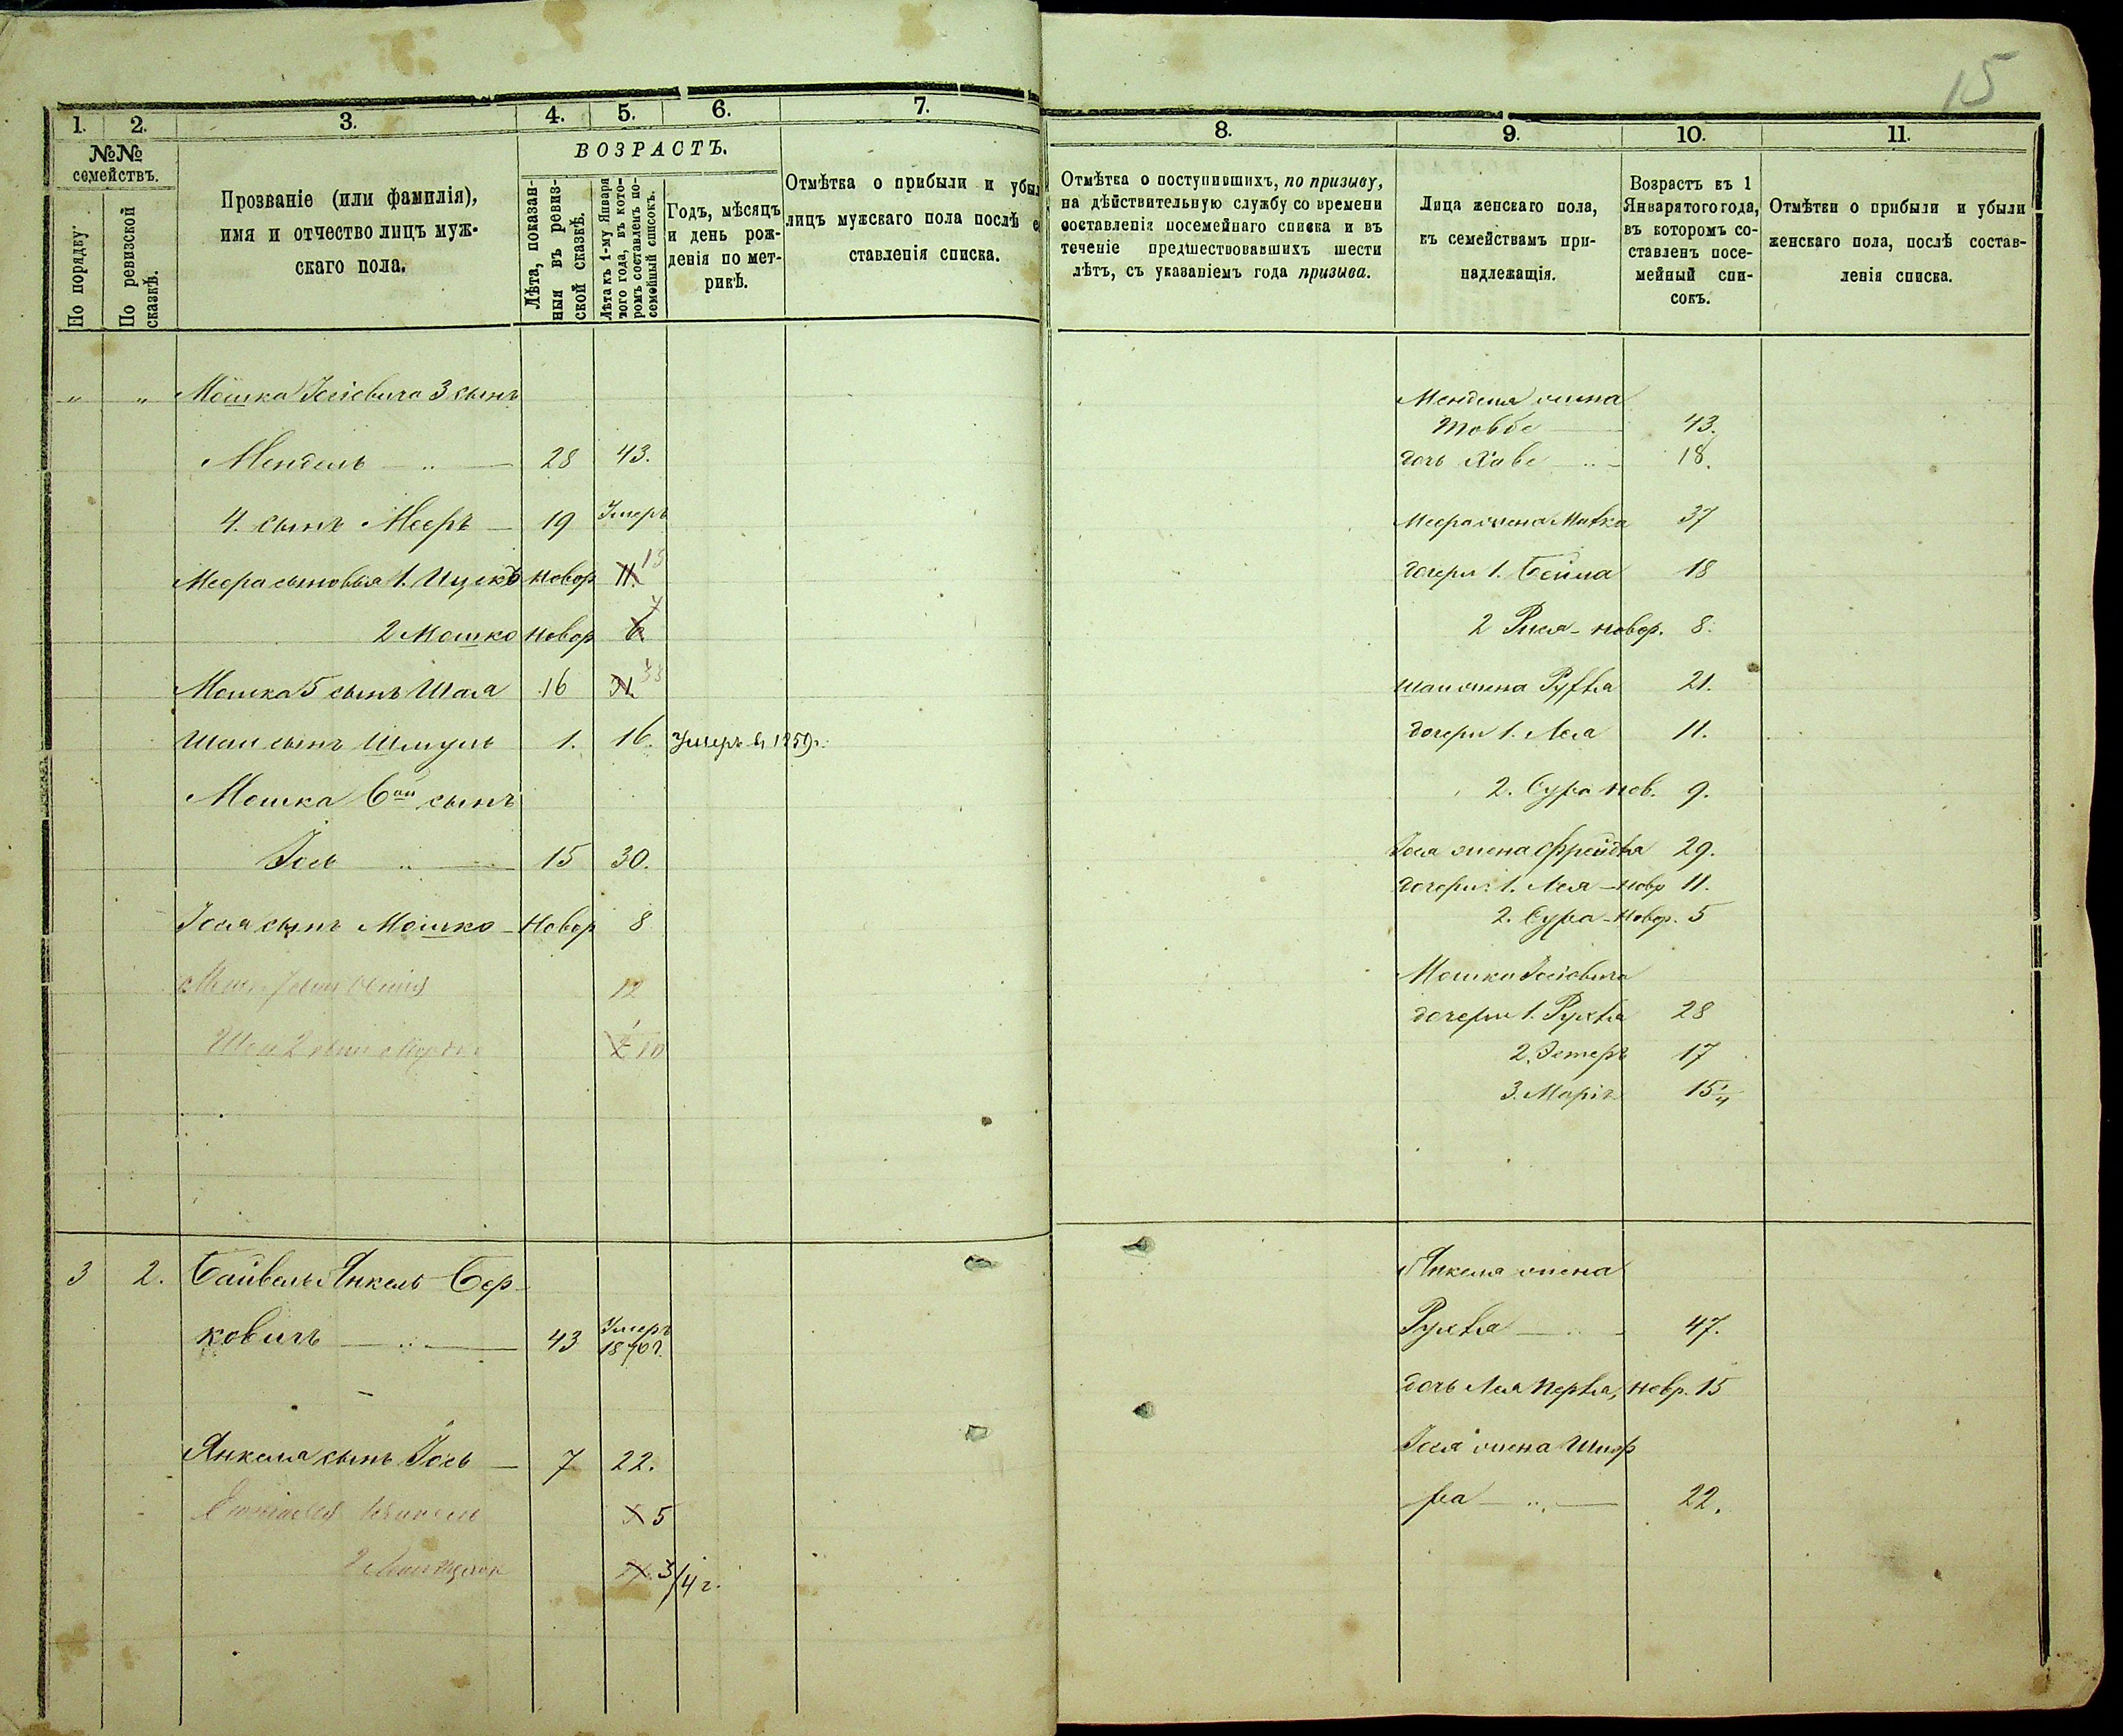 15
1. 2. 3. 4. 5. 6. 7.
№№ семействъ.
По порядку.
По ревизской сказкѣ.
Прозваніе (или фамилія),
имя и отчество лицъ муж-
скаго пола.
ВОЗРАСТЪ.
Лѣта, показан-
ныя въ ревиз-
ской сказкѣ.
Лѣта къ 1-му Января
того года, въ кото-
ромъ составленъ по-
семейный списокъ.
Годъ, мѣсяцъ
и день рож-
денія по мет-
рикѣ.
Отмѣтка о прибыли и убыл
лицъ мужскаго пола послѣ с
ставленія списка.
" " Мошка Іосіевича 3 сынъ
Мендель — " — 28 43.
4. сынъ Мееръ — 19 Умеръ
Меера сыновья 1. Ицекъ новор 11. 13
2 Мошко новор 6 7
Мошка 5 сынъ Шая 16 31. 33
Шаи сынъ Шмуль 1. 16. Умеръ въ 1859г.
Мошка 6ой сынъ
Іось " — 15 30.
Іося сынъ Мошко — Новор 8
12
Шаи 2 сынъ 10
3 2. Байвель Янкель Бер-
ковичъ — " — 43 Умеръ
1870г.
Янкеля сынъ Іось — 7 22.
5
2 3/4 г.
8. 9. 10. 11.
Отмѣтка о поступившихъ, по призыву,
на дѣйствительную службу со времени
составленія посемейнаго списка и въ
теченіе предшествовавшихъ шести
лѣтъ, съ указаніемъ года призыва.
Лица женскаго пола,
къ семействамъ при-
надлежащія.
Возрастъ къ 1
Января того года,
въ которомъ со-
ставленъ посе-
мейный спи-
сокъ.
Отмѣтки о прибыли и убыли
женскаго пола, послѣ состав-
ленія списка.
Менделя жена
Товбе — 43.
дочь Хаве — " — 18.
Меера жена Матка 37
дочери 1. Бейла 18
2 Рися - новор. 8.
Шаи жена Руфка 21.
дочери 1. Лея 11.
2. Сура нов. 9.
Іося жена Фрейдка 29.
дочери: 1. Лея — новр 11.
2. Сура - новор. 5
Мошка Іосіевича
дочери 1. Рухка 28
2. Эстеръ 17
3. Марія 15 1/4
Янкеля жена
Рухка — " — 47.
дочь Лея Перка, новр. 15
Іося жена Шиф
ра — " — 22.